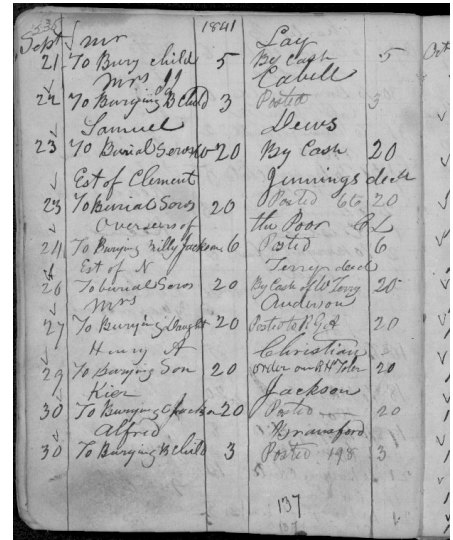 1841
Sept Mr Lay
21 To Bury child 5 By Cash 5
Mrs Cabell
22 To Burying B Child 3 Posted 3
Samuel Dews
23 To Burial Servs 20 By Cash 20
Est of Clement Jennings decd
23 To Burial Servs 20 Posted 66 20
Overseers of the Poor C L
24 To Burying Billy Jackson 6 Posted 6
Est of N Terry decd
26 To burial Servs 20 By Cash of W Terry 20
Mrs Anderson
27 To Burying Daught 20 Posted to R G A 20
Henry A Christian
29 To Burying Son 20 order on 20
Kier Jackson
30 To Burying 20 Posted 20
Alfred Bransford
30 To Burying B Child 3 Posted 198 3
137
137
Oct